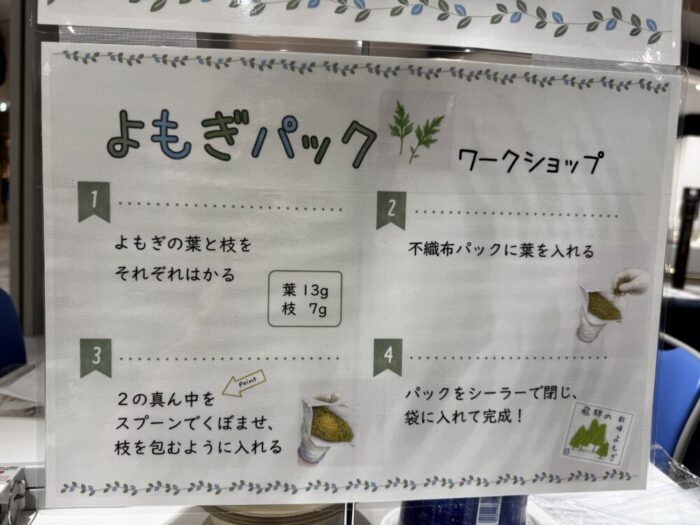 よもぎパック
ワークショップ
1
よもぎの葉と枝を
それぞれはかる
葉 13g
枝 7g
2
不織布パックに葉を入れる
3
Point
２の真ん中を
スプーンでくぼませ、
枝を包むように入れる
4
パックをシーラーで閉じ、
袋に入れて完成！
飛騨の
薬味よもぎ